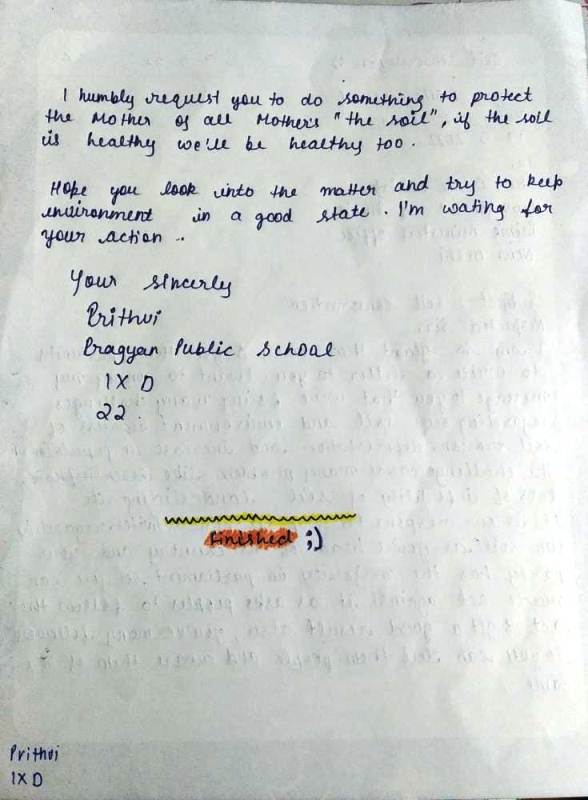 I humbly request you to do something to protect
the Mother of all Mothers "the soil", if the soil
is healthy we'll be healthy too.
Hope you look into the matter and try to keep
environment in a good state. I'm wating for
your action ..
Your sincerly
Prithvi
Pragyan Public School
IX D
22
Finished ;)
Prithvi
IX D